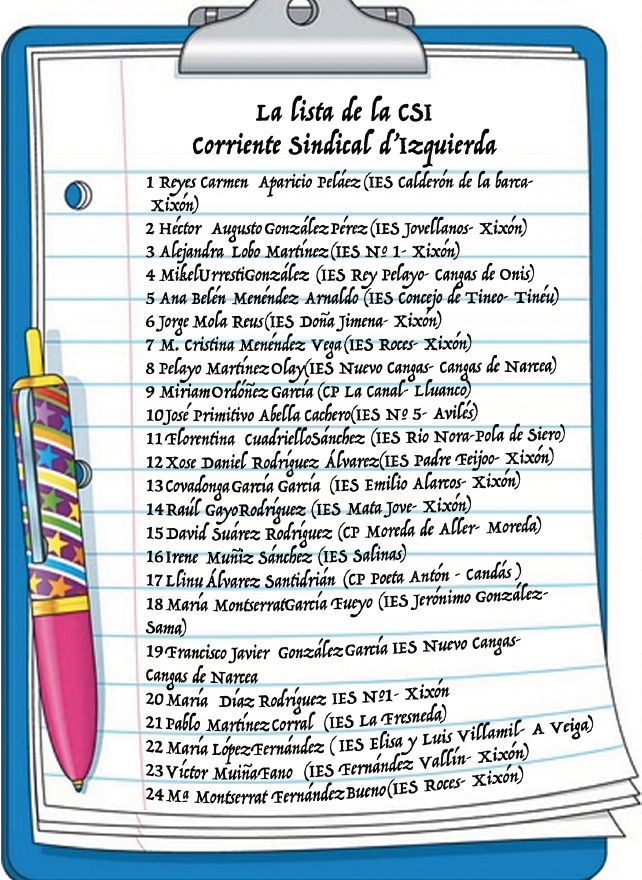 La lista de la CSI
Corriente Sindical d'Izquierda
1 Reyes Carmen Aparicio Peláez (IES Calderón de la barca-
Xixón)
2 Héctor Augusto González Pérez (IES Jovellanos- Xixón)
3 Alejandra Lobo Martínez (IES Nº 1- Xixón)
4 MikelUrrestiGonzález (IES Rey Pelayo- Cangas de Onis)
5 Ana Belén Menéndez Arnaldo (IES Concejo de Tineo- Tinéu)
6 Jorge Mola Reus(IES Doña Jimena- Xixón)
7 M. Cristina Menéndez Vega (IES Roces- Xixón)
8 Pelayo Martínez Olay(IES Nuevo Cangas- Cangas de Narcea)
9 Miriam Ordóñez García (CP La Canal- Lluanco)
10 José Primitivo Abella Cachero(IES Nº 5- Avilés)
11 Florentina CuadrielloSánchez (IES Rio Nora-Pola de Siero)
12 Xose Daniel Rodríguez Álvarez(IES Padre Feijoo- Xixón)
13 Covadonga García García (IES Emilio Alarcos- Xixón)
14 Raúl GayoRodríguez (IES Mata Jove- Xixón)
15 David Suárez Rodríguez (CP Moreda de Aller- Moreda)
16 Irene Muñiz Sánchez (IES Salinas)
17 Llinu Álvarez Santidrián (CP Poeta Antón - Candás )
18 María MontserratGarcía Fueyo (IES Jerónimo González-
Sama)
19 Francisco Javier González García IES Nuevo Cangas-
Cangas de Narcea
20 María Díaz Rodríguez IES Nº1- Xixón
21 Pablo Martínez Corral (IES La Fresneda)
22 María López Fernández ( IES Elisa y Luis Villamil- A Veiga)
23 Víctor Muiña Fano (IES Fernández Vallín- Xixón)
24 Mª Montserrat Fernández Bueno (IES Roces- Xixón)